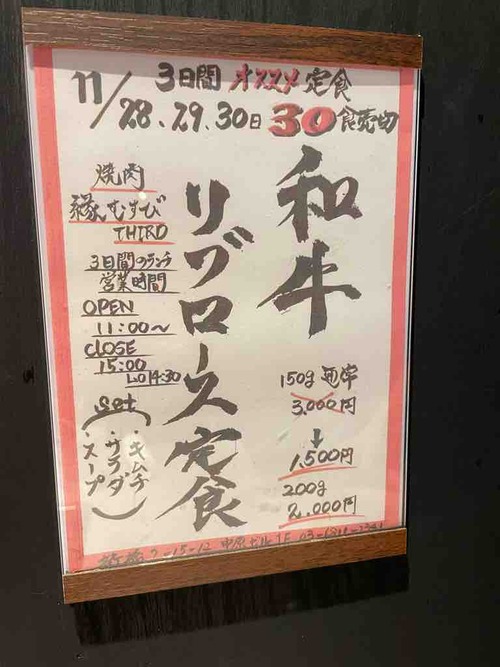 3日間 オススメ定食
11/28、29、30日 30食売切
和牛
リブロース定食
150g 通常
3,000円
↓
1,500円
200g
2,000円
焼肉
縁むすび
THIRD
3日間のランチ
営業時間
OPEN
11:00〜
CLOSE
15:00
L.O14:30
set
・キムチ
・サラダ
・スープ
2-15-12 中原ビル1F